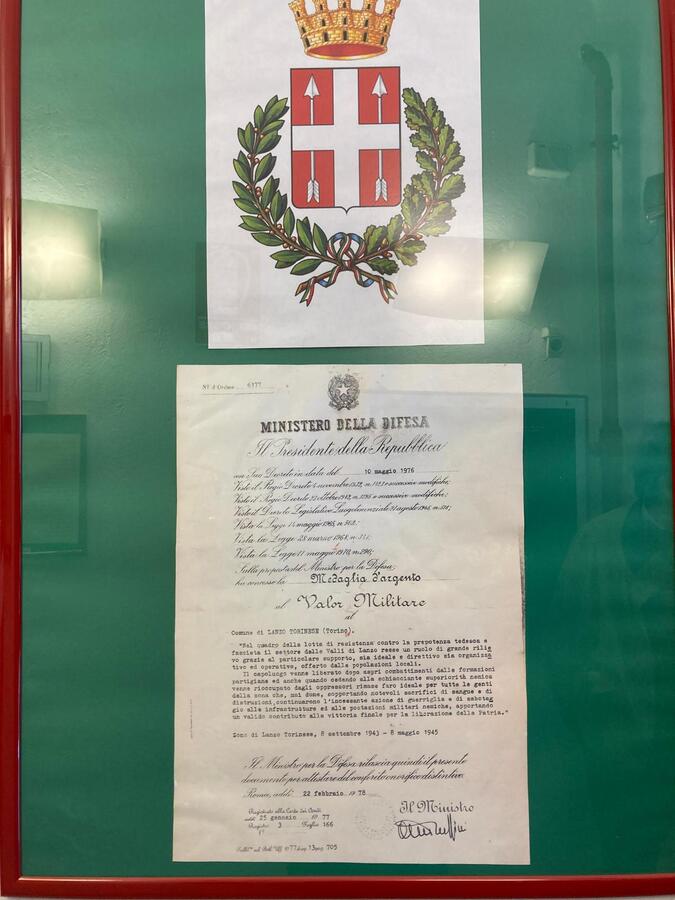 N° d'Ordine 6177
MINISTERO DELLA DIFESA
Il Presidente della Repubblica
con Suo Decreto in data del 10 maggio 1976
Visto il Regio Decreto 4 novembre 1932, n. 1423 e successive modifiche;
Visto il Regio Decreto 23 ottobre 1942, n. 1195 e successive modifiche;
Visto il Decreto Legislativo Luogotenenziale 21 agosto 1945, n. 518;
Vista la Legge 14 maggio 1965, n. 502;
Vista la Legge 28 marzo 1968,
Vista la Legge 11 maggio 1970, n. 290;
Sulla proposta del Ministro per la Difesa;
ha concesso la Medaglia d'argento
al Valor Militare
al
Comune di LANZO TORINESE (Torino).
"Nel quadro della lotta di resistenza contro la prepotenza tedesca e
fascista il settore delle Valli di Lanzo resse un ruolo di grande rilie
vo grazie al particolare supporto, sia ideale e direttivo sia organizza
tivo ed operativo, offerto dalla popolazioni locali.
Il capoluogo venne liberato dopo aspri combattimenti dalle formazioni
partigiane ed anche quando cedendo alla schiacciante superiorità nemica
venne rioccupato dagli oppressori rimase faro ideale per tutte le genti
della zona che, mai dome, sopportando notevoli sacrifici di sangue e di
distruzioni, continuarono l'incessante azione di guerriglia e di sabotag
gio alle infrastrutture ed alle postazioni militari nemiche, apportando
un valido contributo alla vittoria finale per la liberazione della Patria."
Zona di Lanzo Torinese, 8 settembre 1943 - 8 maggio 1945
Il Ministro per la Difesa rilascia quindi il presente
documento per attestare del conferito onorifico distintivo.
Roma, addì 22 febbraio 1978
Registrato alla Corte dei Conti
addì 25 gennaio 1977
Registro 3 Foglio 166
Il Ministro
Pubbl.to nel Boll. Uff. 1977 disp. 13 pag. 705